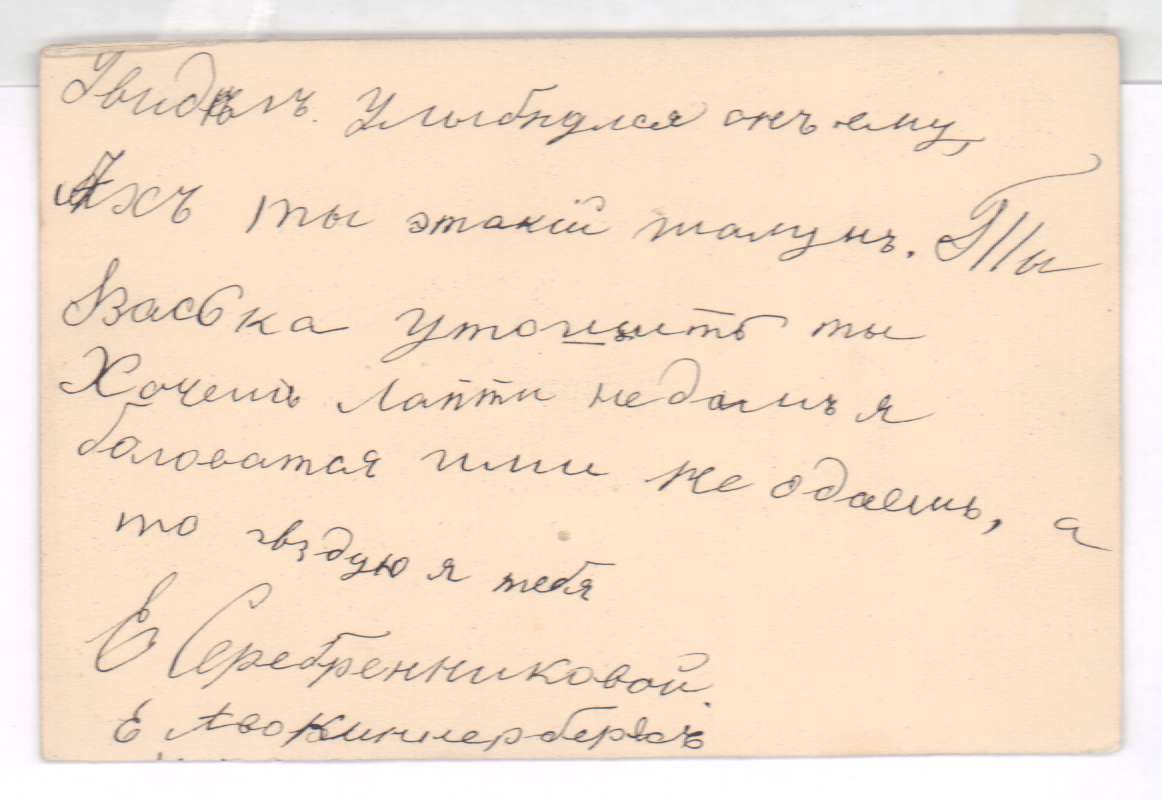 Увидѣлъ. Улыбнулся онъ ему,
Ахъ ты этакій шалунъ. Ты
Васька утощитъ ты
Хочешь лапти недамъ я
баловатся ими не одаешь, а
то вздую я тебя
Е Серебренниковой.
Е